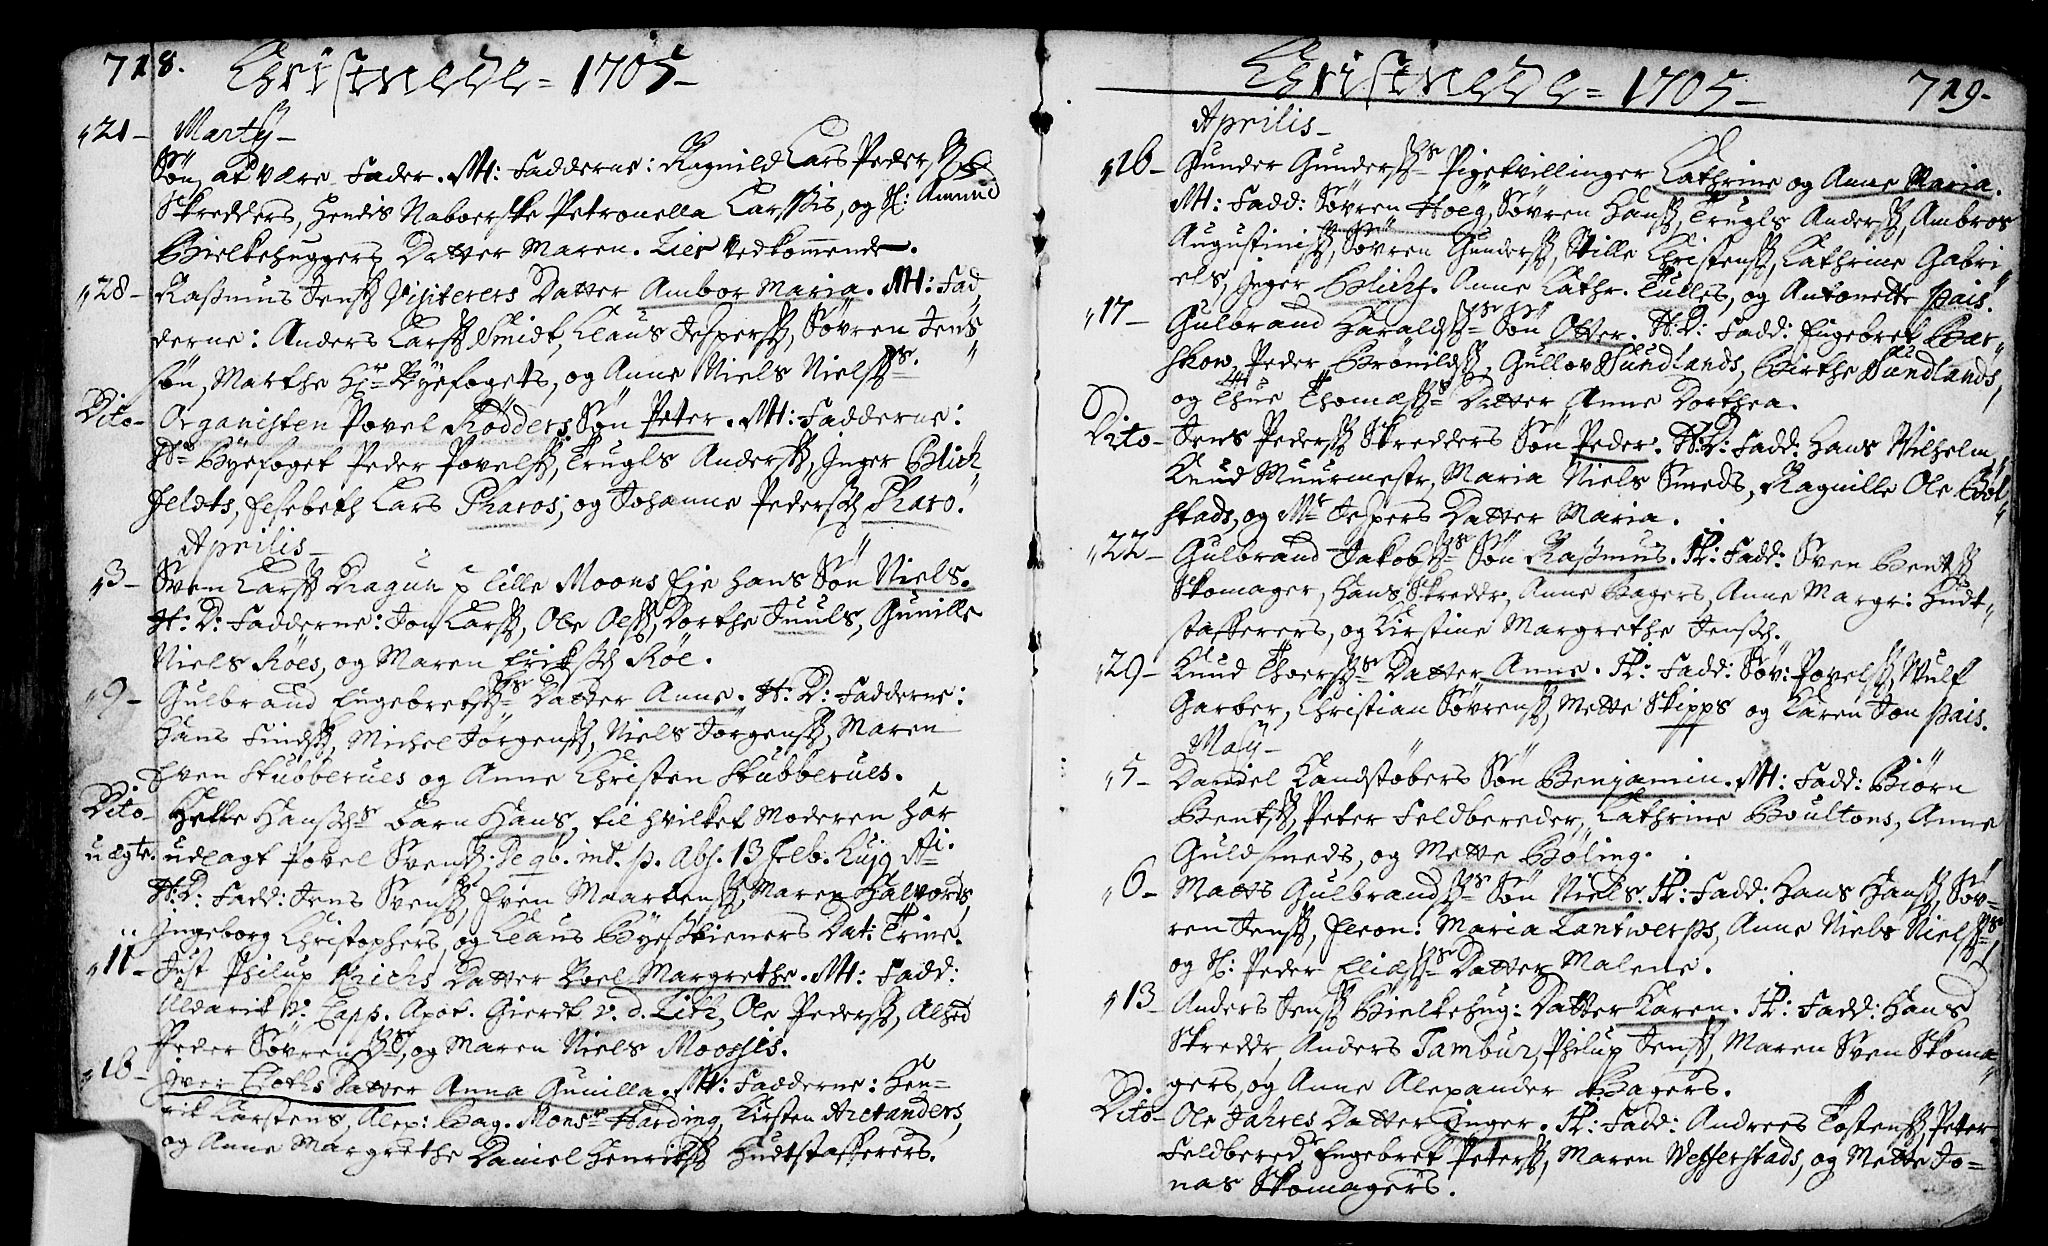 718. Christnede = 1705 -
21 - Martij -
Søn, at være Fader. M: Fadderne: Ragnild Lars Peders
Skredders, hendis Naboerske Petronella Larsis, og H: Amund
Bielkehuggers Datter Maren. Lier vedkommende.
28 - Rasmus Jens. Visiterers Datter Ambor Maria. M: Fad
derne: Anders Lars. Smidt, Claus Jespers., Søvren Jens
søn, Marthe Hr Byefogets, og Anne Niels Niels.
Dito - Organisten Povel Rødders Søn Peter. M: Fadderne:
Hr Byefoget Peder Povels., Trugls Anders., Inger Blich
feldts, Elsebeth Lars Pharos, og Johanne Peders. Pharo.
Aprilis -
3 - Sven Lars. Dragun p lille Moens Eje hans Søn Niels.
H: D: Fadderne: Jon Lars., Ole Ols., Dorthe Juuls, Gunille
Niels Røes, og Maren Eriks. Røe.
9 - Gulbrand Engebrets. Datter Anne. H: D: Fadderne:
Hans Finds., Michel Jørgens., Niels Jørgens., Maren
Even Skubberues og Anne Christen Skubberues.
Dito - Helle Hans. barn Hans, til hvilket Moderen har
uægte. udlagt Povel Svens. 13 Feb.
H: D: Fadd: Jens Svens., Even Maartens., Maren Halvords,
Ingeborg Christophers, og Claus Byesskieners Dat: Trine.
11 - Just Philup Erichs Datter Boel Margrethe. M: Fadd:
Uldarik v: Capp. Apot. Gierdt v. d. Lith, Ole Peders., Alhed
Peder Søvrens., og Maren Niels Moosses.
16 - Iver Eloths Datter Anna Gunilla. M: Fadderne: Hen=
rik Carstens, Alex: Bag. Monsr Harding, Kirsten Arctanders,
og Anne Margrethe Daniel Henriks. Hudtstafferers.
Christnede = 1705 - 719.
Aprilis -
16 - Gunder Gunders. Pigetvillinger Cathrine og Anne Maria.
M: Fadd: Søvren Hoeg, Søvren Hans., Trugls Anders., Ambros
Augustini., Søvren Gunders., Stille Christens., Cathrine Gabri
els, Inger Blichf. Anne Cathr. Tulles, og Antonette Pais.
17 - Gulbrand Haralds. Søn Otter. H: D: Fadd: Engebret Bar
skow, Peder Brønilds., Gullov Sundlands, Birthe Sundlands,
og Thue Thomæs. Datter Anne Dorthea.
Dito - Jens Peders. Skredders Søn Peder. H: D: Fadd: Hans Vilhelm,
Knud Muurmestr, Maria Niels Smeds, Ragnille Ole Bol
stads, og Mr Jespers Datter Maria.
22 - Gulbrand Jakobs. Søn Rasmus. P: Fadd: Sven Bents.
Skomager, Hans Skreddr, Anne Bagers, Anne Margr: Hudt
stafferers, og Kirstine Margrethe Jens.
29 - Knud Thoers. Datter Anne. P: Fadd: Søv: Povels., Wulf
Garber, Christian Søvrens., Mette Skipps og Karen Jon Pais.
Maij -
5 - Daniel Kandstøbers Søn Benjamin. M: Fadd: Biørn
Bents., Peter Feldbereder, Cathrine Boultons, Anne
Guldsmeds, og Mette Bøling.
6 - Mats Gulbrands. Søn Niels. P: Fadd: Hans Hans., Søv=
ren Jens., Eleon: Maria Lantwerps, Anne Niels Niels.,
og H: Peder Eliæs. Datter Malene.
13 - Anders Jens. Bielkehug: Datter Karen. P: Fadd: Hans
Skreddr, Anders Tambur, Philup Jens., Maren Sven Skoma
gers, og Anne Alexander Bagers.
Dito - Ole Jahres Datter Inger. P: Fadd: Andrees Tostens., Peter
Feldbered, Engebret Peters., Maren Wesserstads, og Mette Jo=
nas Skomagers.